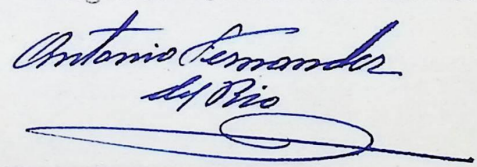 Antonio Fernandez
del Rio